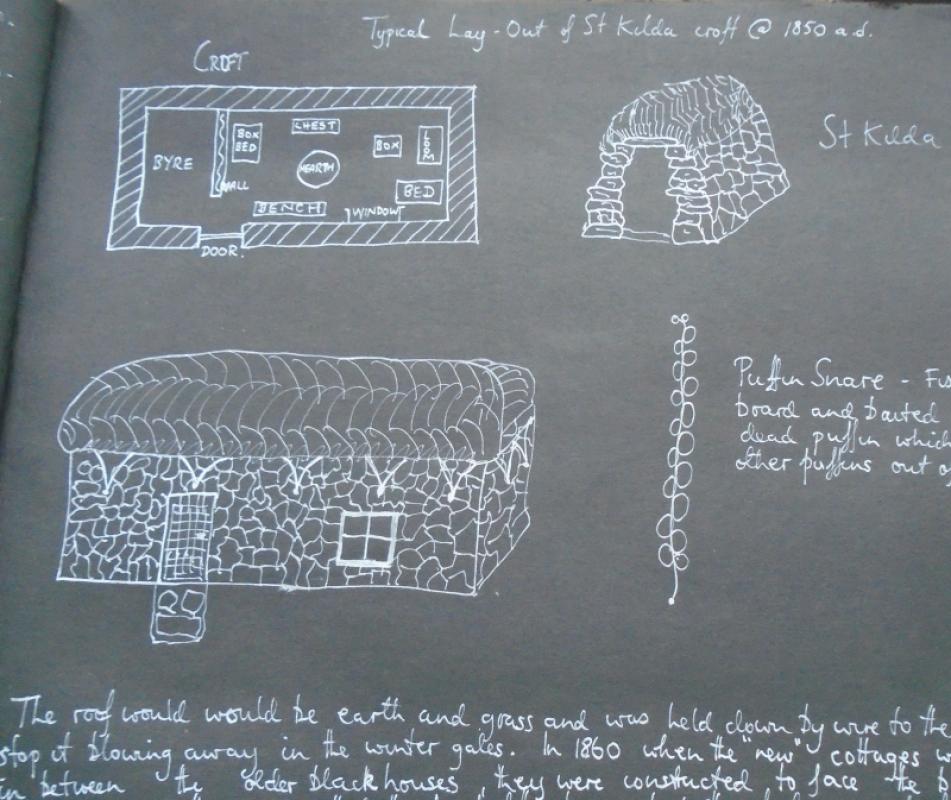 Typical Lay-Out of St Kilda croft @ 1850 a.d.
CROFT
BYRE
WALL
BOX
BED
CHEST
HEARTH
BENCH
BOX
LOOM
BED
WINDOW
DOOR.
St Kilda
Puffin Snare -
board and baited
dead puffin
other puffins out
The roof would would be earth and grass and was held down by wire to the
stop it blowing away in the winter gales. In 1860 when the "new" cottages
in between the older blackhouses, they were constructed to face the